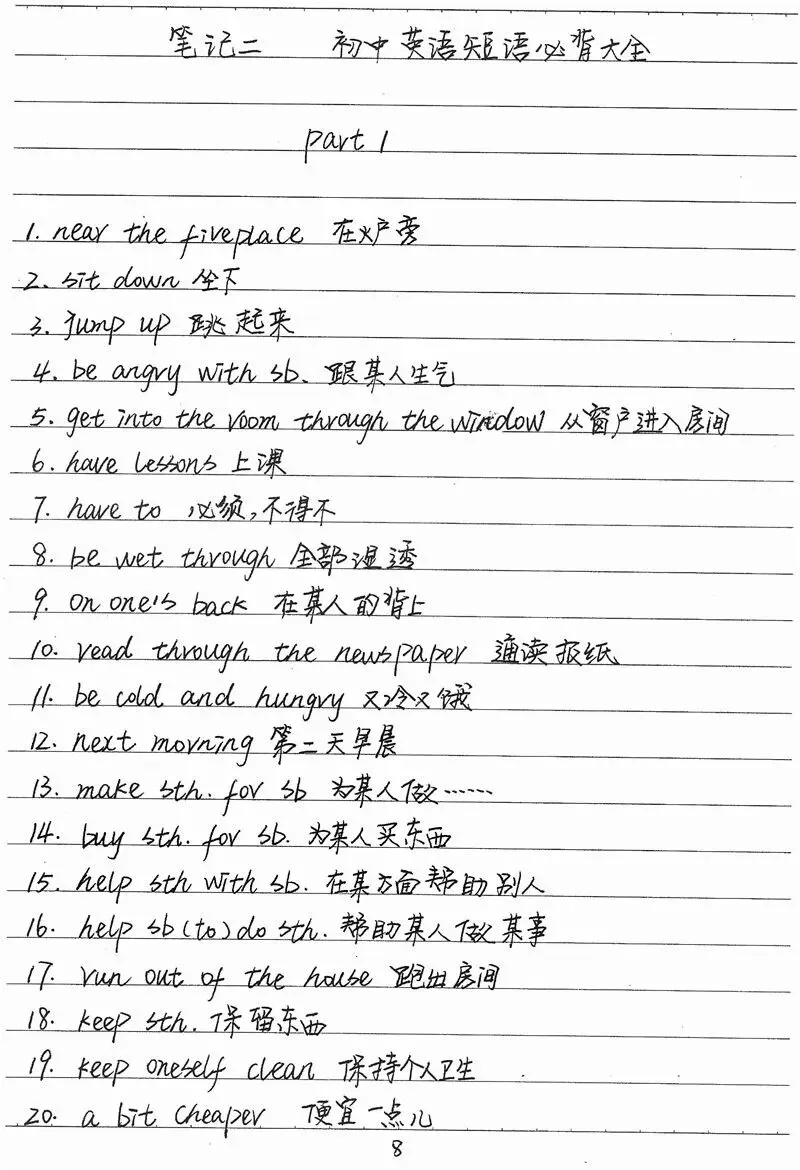 笔记二 初中英语短语必背大全
part 1
1. near the fireplace 在火户旁
2. sit down 坐下
3. jump up 跳起来
4. be angry with sb. 跟某人生气
5. get into the room through the window 从窗户进入房间
6. have lessons 上课
7. have to 必须,不得不
8. be wet through 全部湿透
9. on one's back 在某人的背上
10. read through the newspaper 通读报纸
11. be cold and hungry 又冷又饿
12. next morning 第二天早晨
13. make sth. for sb 为某人做……
14. buy sth. for sb. 为某人买东西
15. help sth with sb. 在某方面帮助别人
16. help sb (to) do sth. 帮助某人做某事
17. run out of the house 跑出房间
18. keep sth. 保留东西
19. keep oneself clean 保持个人卫生
20. a bit cheaper 便宜一点儿
8